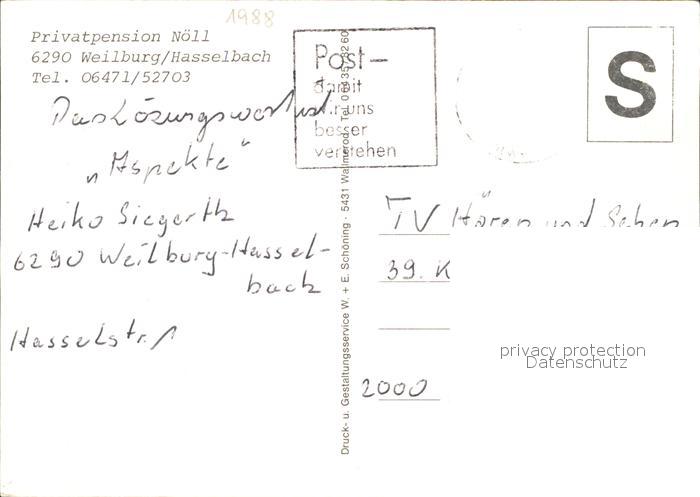 1988
Privatpension Nöll
6290 Weilburg/Hasselbach
Tel. 06471/52703
Post-
damit
wir uns
besser
verstehen
S
Das Lösungswort ist
„Aspekte"
Heiko Siegerth
6290 Weilburg-Hassel-
bach
Hasselstr. 1
Druck- u. Gestaltungsservice W. + E. Schöning · 5431 Wallmerod · Tel.
TV Hören und Sehen
39. K
2000
privacy protection
Datenschutz